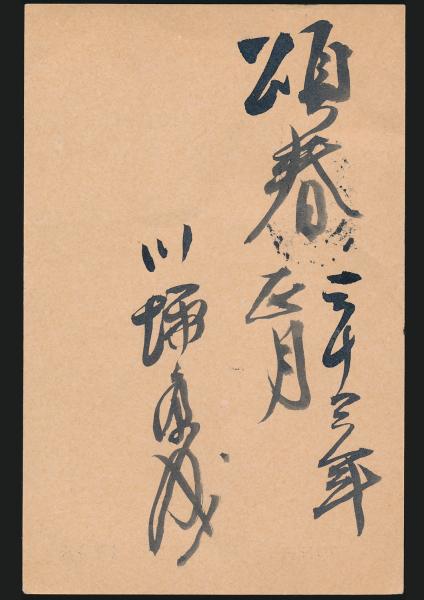 頌春
三十三年
正月
川端康成